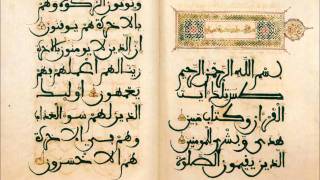 بسم الله الرحمن الرحيم
طس تلك ايت
القران وكتاب مبين
هدى وبشرى للمومنين
الذين يقيمون الصلوة
ويوتون الزكوة وهم
بالاخرة هم يوقنون
ان الذين لا يومنون بالاخرة
زينا لهم اعملهم فهم
يعمهون اولئك
الذين لهم سوء العذاب
وهم في الاخرة
هم الاخسرون